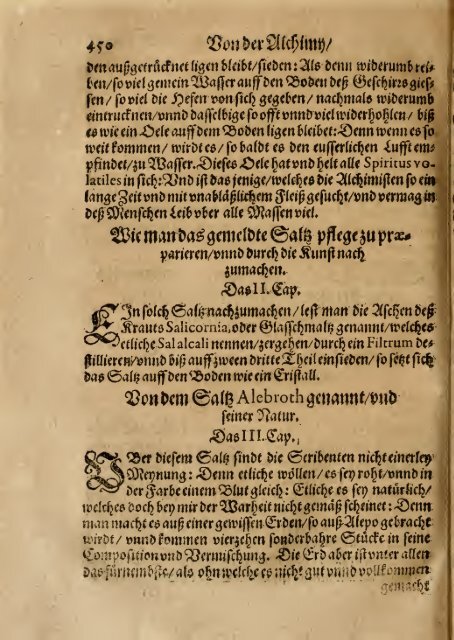 450 Von der Alchimy/
den außgetrücknet ligen bleibt/sieden: Als denn widerumb rei-
ben/so viel gemein Wasser auff den Boden deß Geschirrs gies-
sen/so viel die Hefen von sich gegeben/nachmals widerumb
eintrucknen/vnnd dasselbige so offt vnnd viel widerhohlen/biß
es wie ein Oele auff dem Boden ligen bleibet: Denn wenn es so
weit kommen/wirdt es/so baldt es den eusserlichen Lufft em-
pfindet/zu Wasser. Dieses Oele hat vnd helt alle Spiritus vo-
latiles in sich: Vnd ist das jenige/welches die Alchimisten so ein
lange Zeit vnd mit vnabläßlichem Fleiß gesucht/vnd vermag in
deß Menschen Leib vber alle Massen viel.
Wie man das gemeldte Saltz pflege zu præ-
parieren/vnnd durch die Kunst nach
zumachen.
Das II. Cap.
EIn solch Saltz nachzumachen/lest man die Aschen deß
Krauts Salicornia, oder Glasschmaltz genannt/welches
etliche Sal alcali nennen/zergehen/durch ein Filtrum de-
stillieren/vnnd biß auff zween dritte Theil einsieden/so setzt sich
das Saltz auff den Boden wie ein Cristall.
Von dem Saltz Alebroth genannt/vnd
seiner Natur.
Das III. Cap.
VBer diesem Saltz sindt die Scribenten nicht einerley
Meynung: Denn etliche wöllen/es sey roht/vnnd in
der Farbe einem Blut gleich: Etliche es sey natürlich/
welches doch bey mir der Warheit nicht gemäß scheinet: Denn
man macht es auß einer gewissen Erden/so auß Alepo gebracht
wirdt/vnnd kommen vierzehen sonderbahre Stücke in seine
Composition vnd Vermischung. Die Erd aber ist vnter allen
das fürnembste/als ohn welche es nicht gut vnnd vollkommen
gemacht